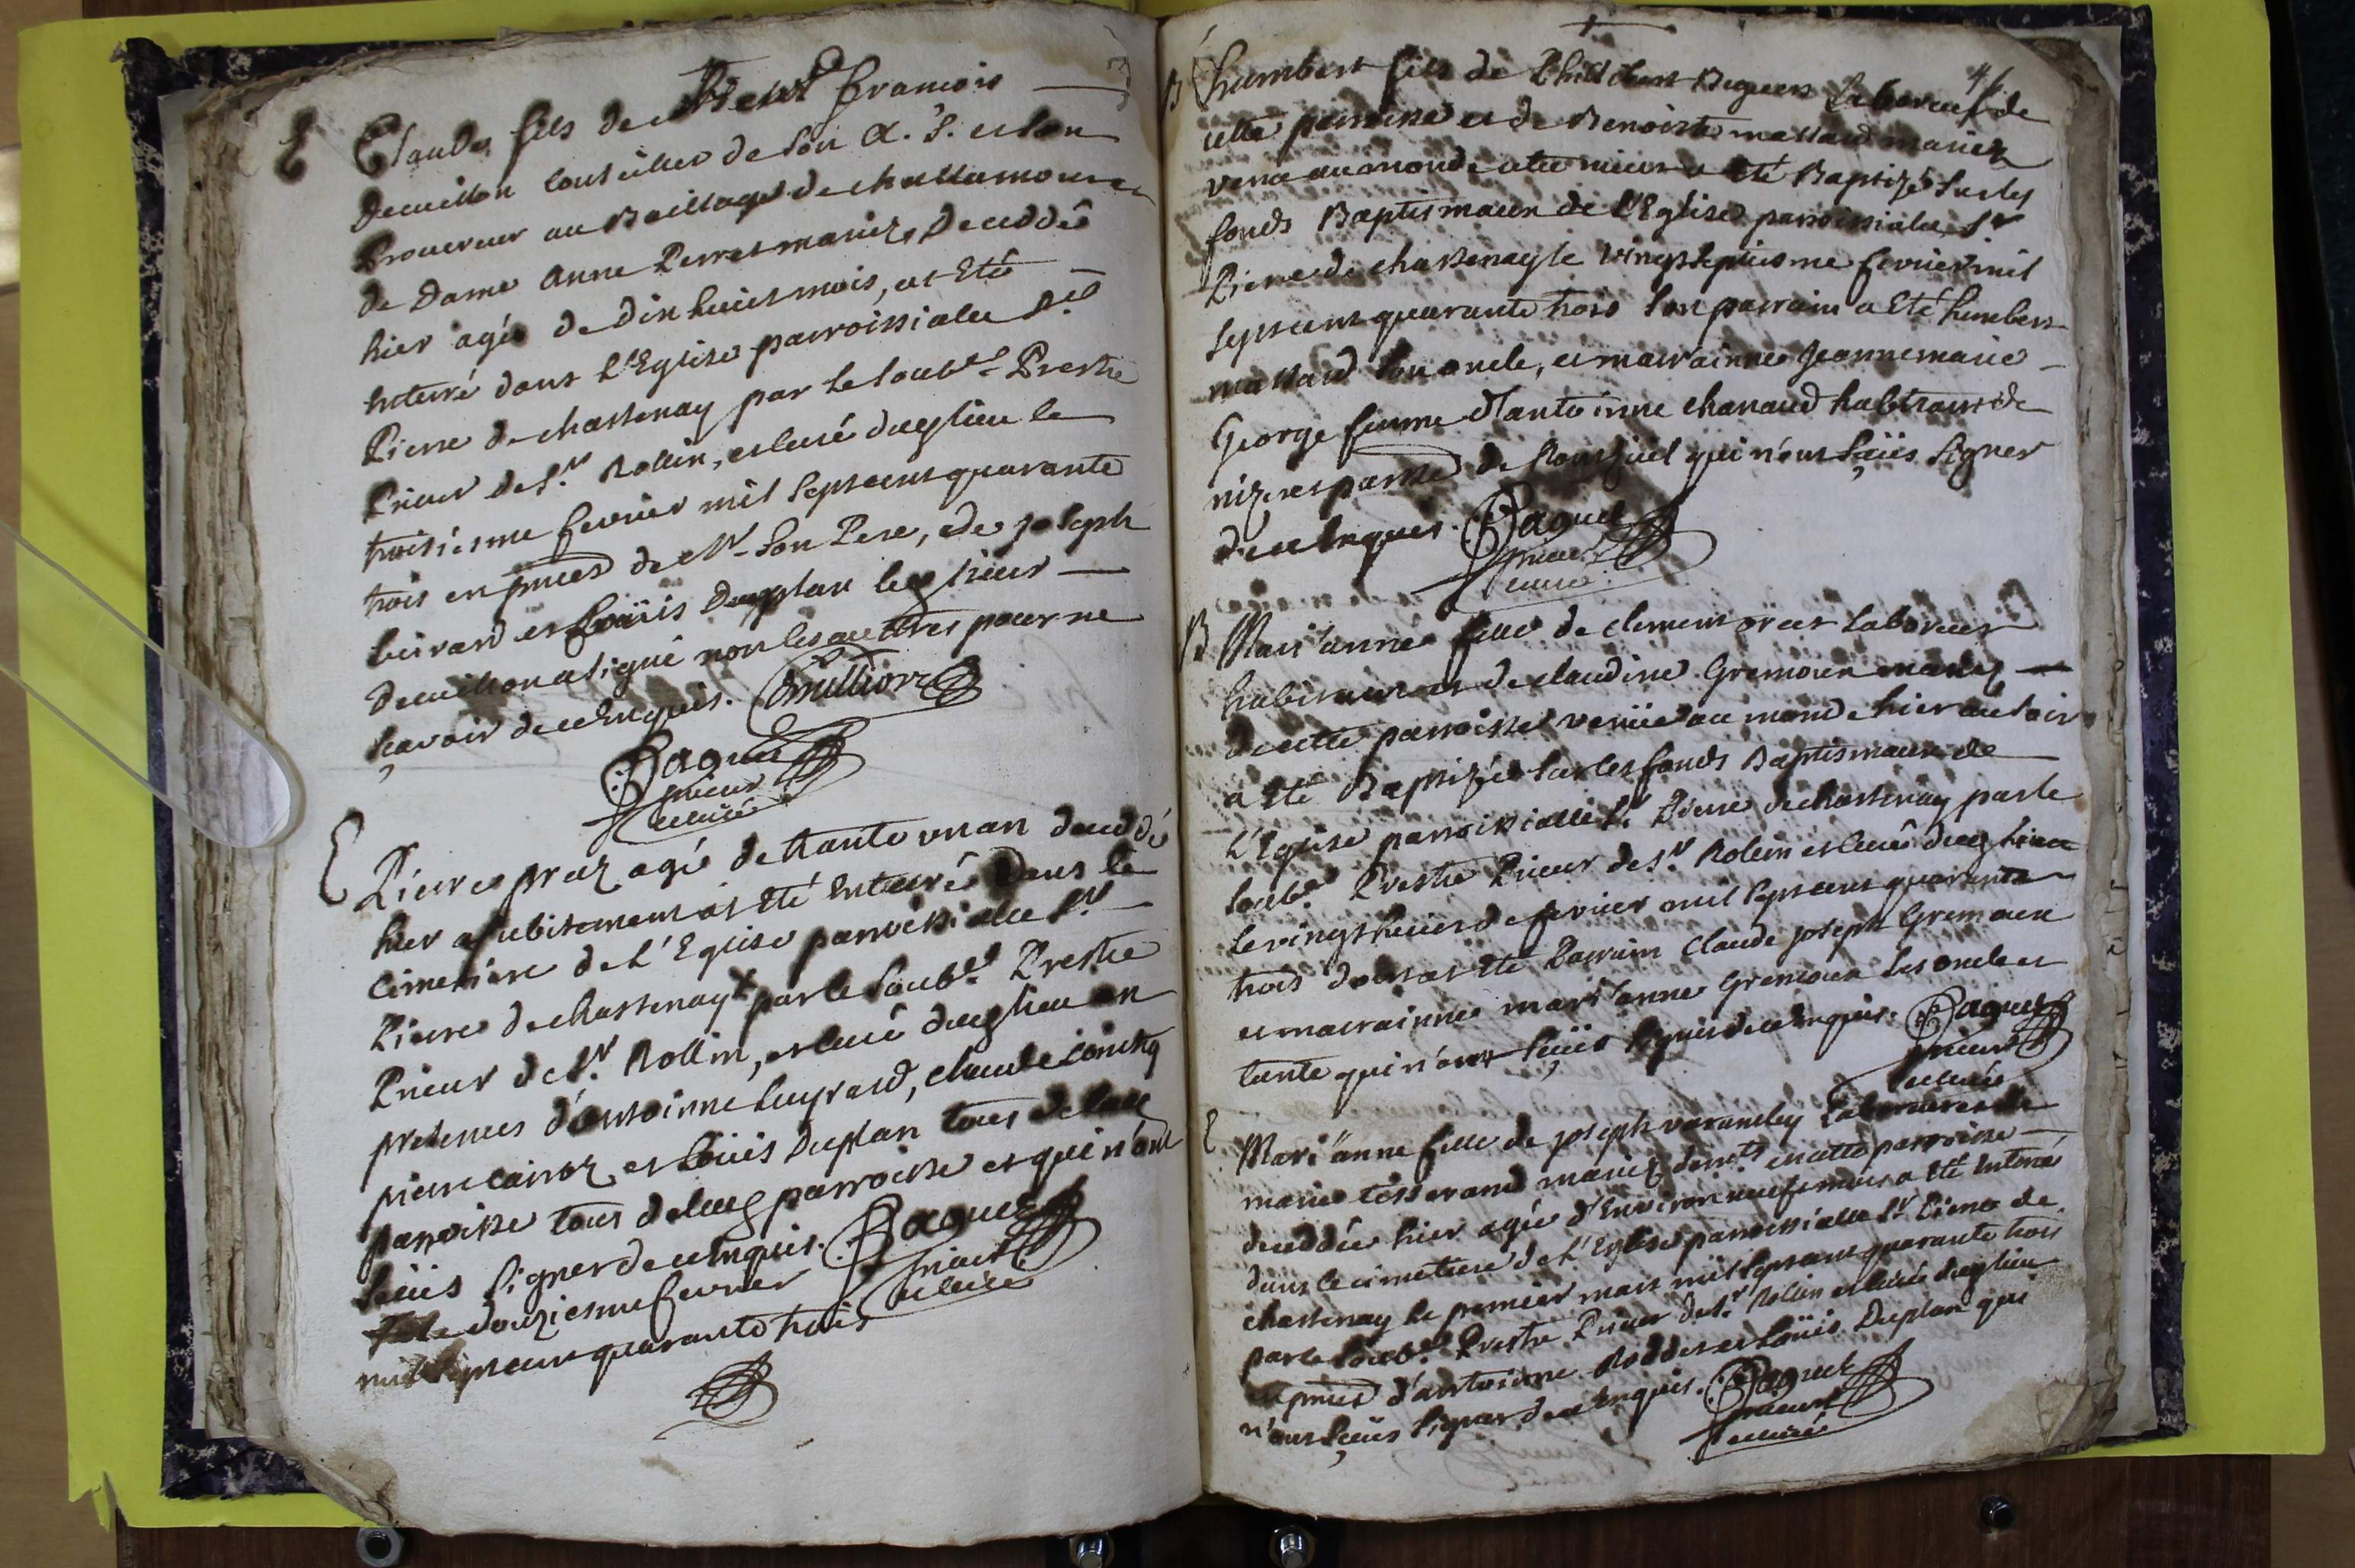 E Claude fils de Sieur francois
Demillon Conseiller de son A. S. et son
Procureur au Bailliage de chattamour
de Dame Anne Perret mariez, Deceddé
hier agé de dix huict mois, at Eté
Enterré dans l'Eglise parroissialle St
Pierre de chastenay par le soubd. Prestre
Prieur de St. Rollin, et curé dugt lieu le
troisiesme fevrier mil sept cent quarante
trois en pnces de Mr son Pere, de joseph
et Loüis Duplan led. sieur
Demillon a signé non les autres pour ne
sçavoir de ce Enquis. Demillion
Baquet
prieur
et curé
E Pierre praz agé de trante un an deceddé
hier a subitement at Eté Enterré Dans le
cimetiere de l'Eglise parroissialle St
Pierre de chastenay par le soubd. Prestre
Prieur de St. Rollin, et curé dugt lieu en
presences d'antoinne Luyrard, claude
pierre et Loüis Duplan tous de
parroisse tous de parroisse et qui n'ont
sçeüs signer de ce Enquis. Baquet
le douziesme fevrier prieur
mil sept cent quarante trois et curé
46
B humbert fils de Philibert Laboreur de
cette parroisse et de Benoiste massard mariez
venu au monde cette nuict a Eté Baptizé sur les
fonds Baptismaux de l'Eglise parroissialle St
Pierre de chastenay le vingt septiesme fevrier mil
sept cent quarante trois son parrain a Eté humbert
massard son oncle, et marrainne Jeanne marie
George femme d'antoinne chanaud habitant de
parsse de qui n'ont sçeüs signer
de ce Enquis. Baquet
prieur
et curé
B Mari'anne fille de clement Laboreur
habitant et de claudine Gremoux mariez
de cette parroisse venüe au monde hier au soir
a Eté Baptizée sur les fonds Baptismaux de
l'Eglise parroissialle St. Pierre de chastenay par le
soubd. Prestre Prieur de St. Rolin et curé dugt lieu
le vingt huict de fevrier mil sept cent quarante
trois dont at Eté Parrain Claude joseph Gremoux
et marrainne mari'anne Gremoux ses oncle et
tante qui n'ont sçeüs signer de ce Enquis. Baquet
prieur
et curé
E Mari'anne fille de joseph Laboreur et de
marie tisserand mariez demts en cette parroisse
deceddée hier agée d'Environ neuf mois a Eté Enterré
dans le cimetiere de l'Eglise parroissialle St. Pierre de
chastenay le premier mars mil sept cent quarante trois
par le soubd. Prestre Prieur de St. Rollin et curé dugt lieu
en pnces d'antoinne Roddet et Loüis Duplan qui
n'ont sçeüs signer de ce Enquis. Baquet
prieur
et curé